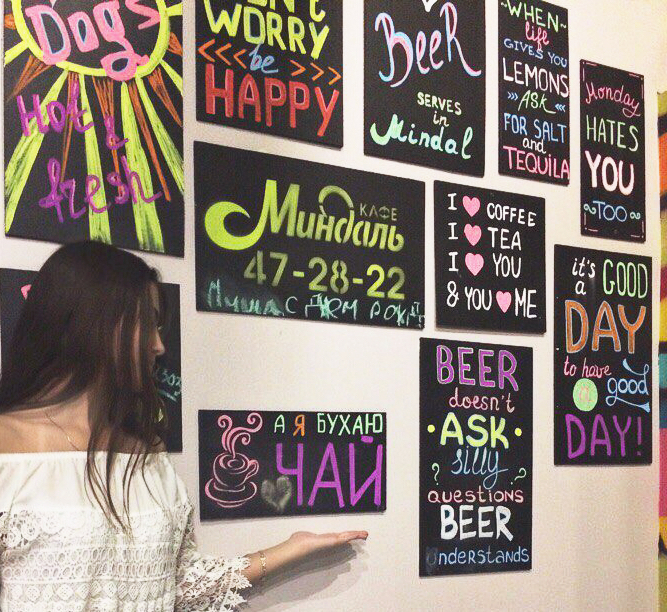 Dogs
Hot &
fresh
WORRY
<<< be >>>
HAPPY
BeeR
SERVES
in
Mindal
~WHEN~
life
GIVES YOU
LEMONS
»» ASK ««
FOR SALT
and
TEQUILA
Monday
HATES
YOU
~TOO~
КАФЕ
Миндаль
47-28-22
I ♥ COFFEE
I ♥ TEA
I ♥ YOU
& YOU ♥ ME
it's
a GOOD
DAY
to have
a good
DAY!
А Я БУХАЮ
ЧАЙ
BEER
doesn't
• ASK •
silly
? questions ?
BEER
Understands